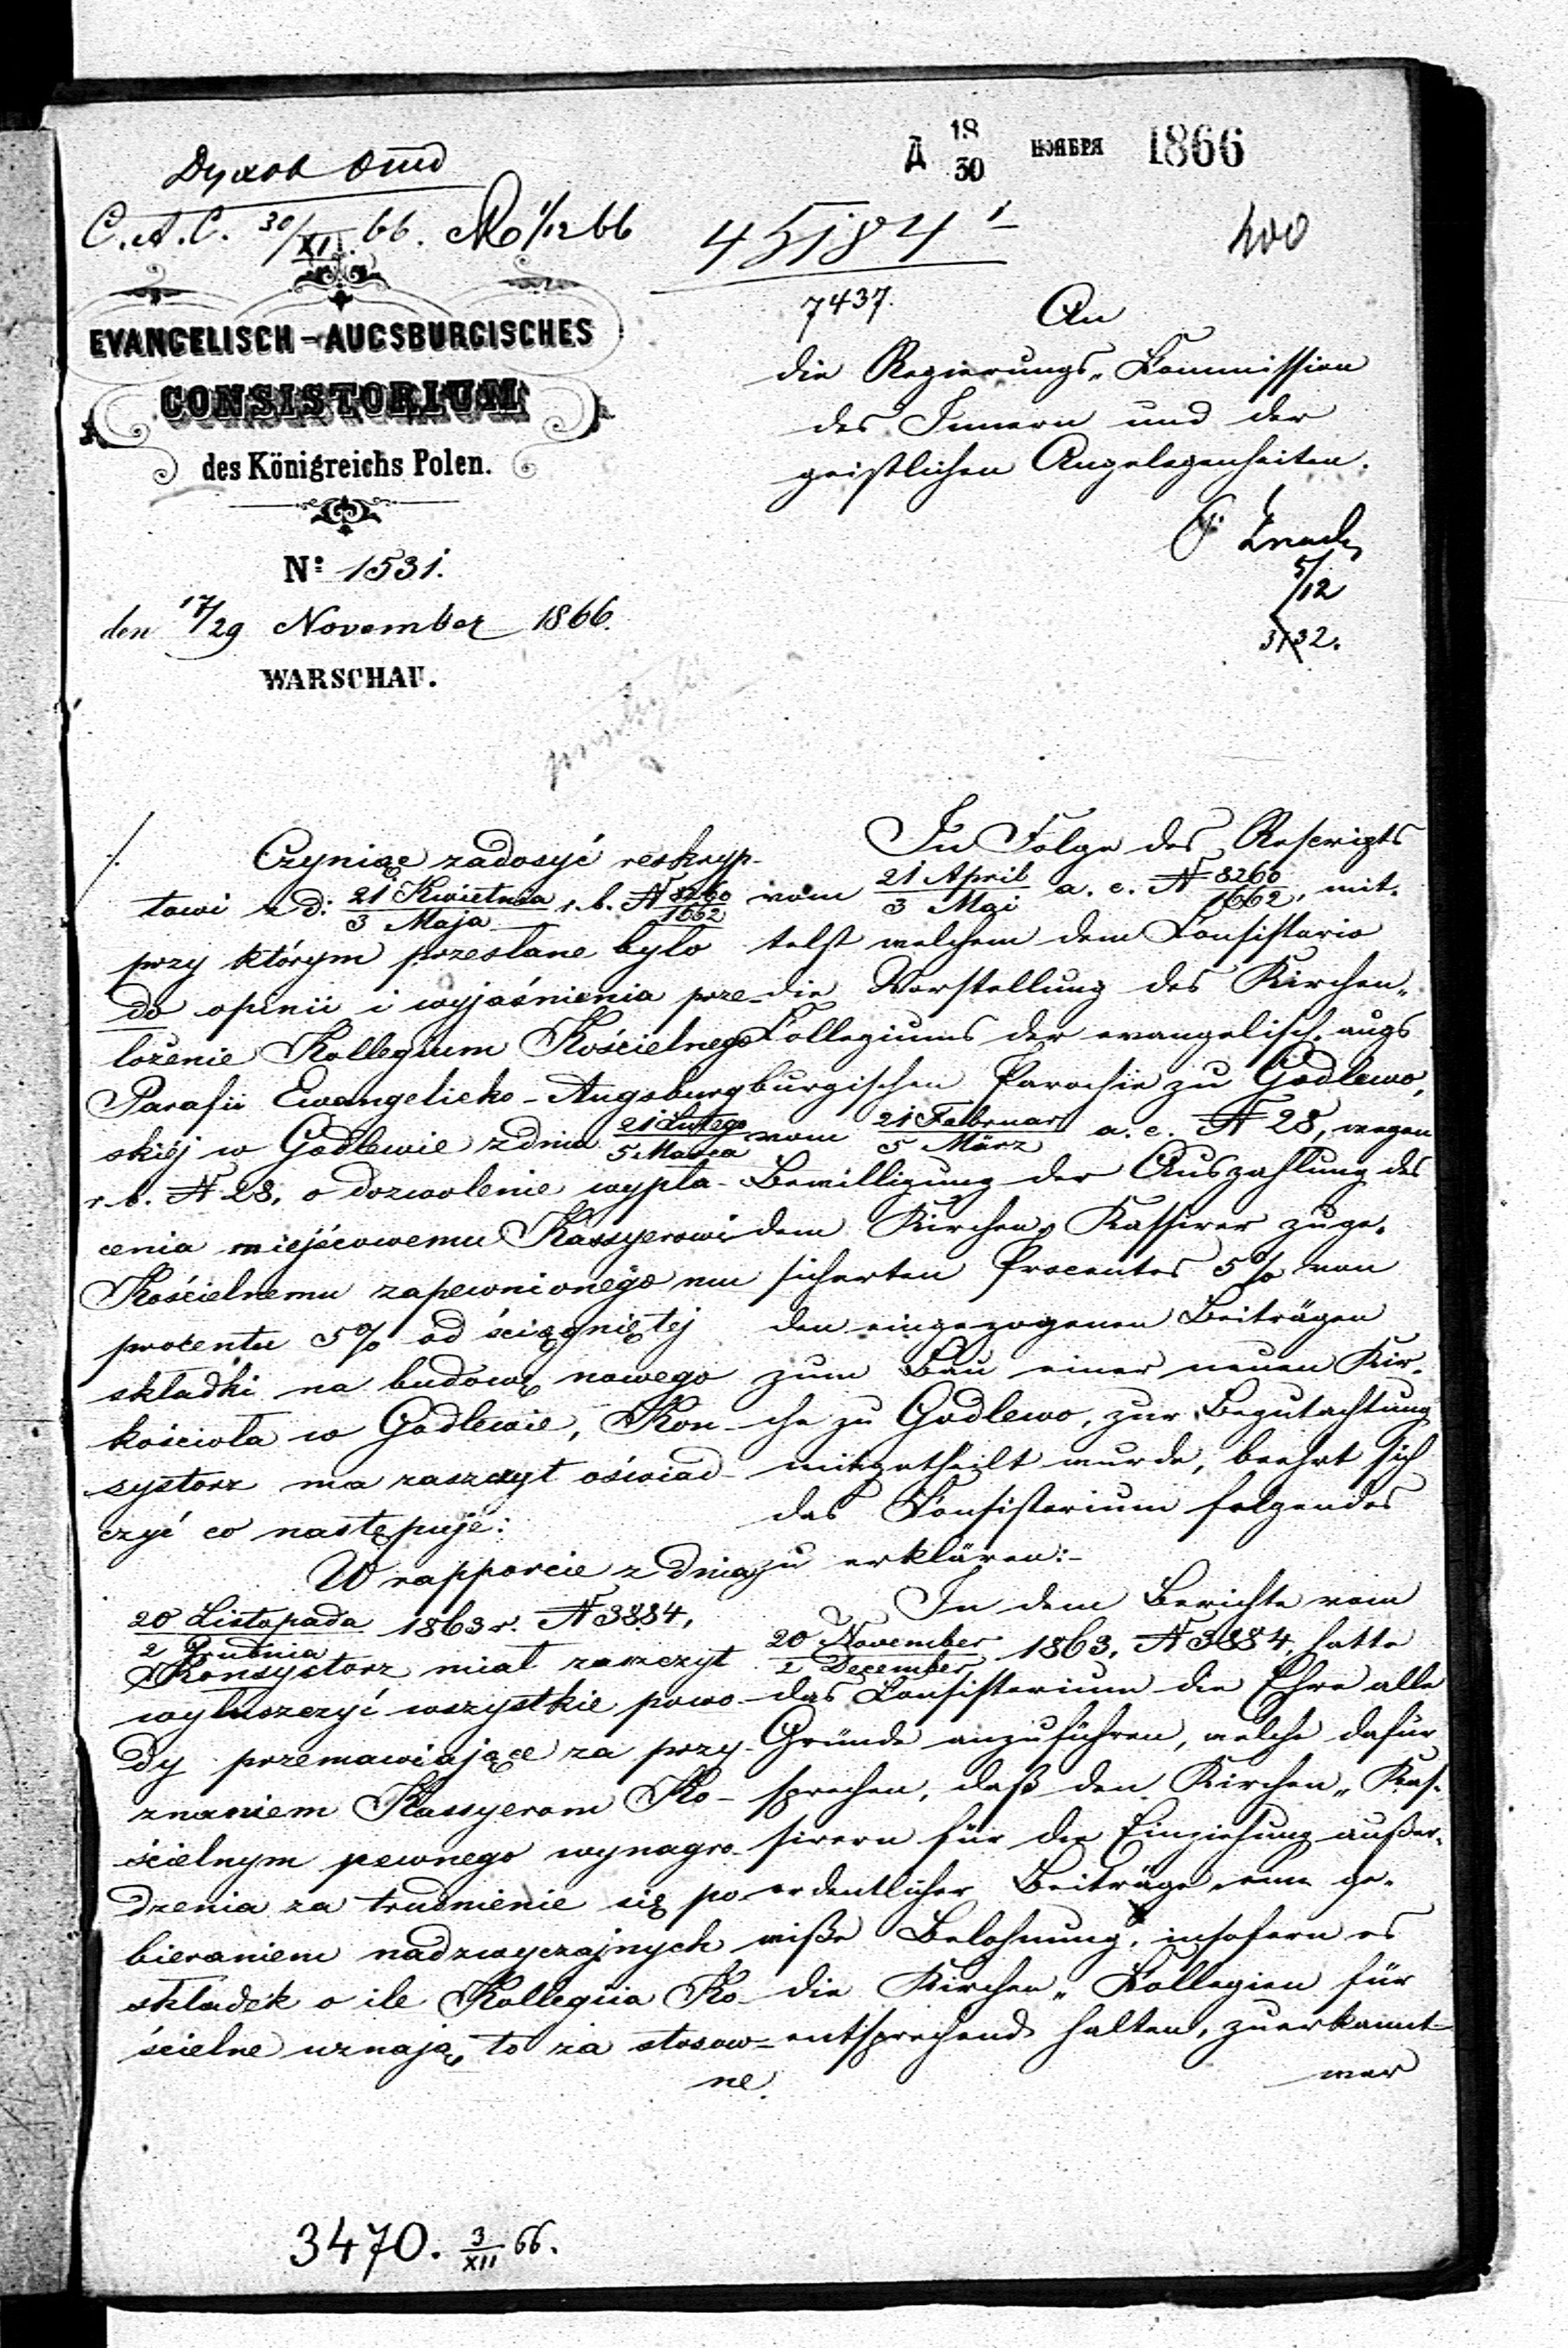 Духов Отд
С.А.С. 30/XII. 66. 1/12 66
Д 18/30 НОЯБРЯ 1866
45184
400
7437.
EVANGELISCH-AUGSBURGISCHES
CONSISTORIUM
des Königreichs Polen.
Nº 1531.
den 17/29 November 1866.
WARSCHAU.
An
die Regierungs-Kommission
des Innern und der
geistlichen Angelegenheiten.
5/12
3132.
Czyniąc zadosyć reskryp-
towi z d: 21 Kwietnia/3 Maja r. b. N 8260/1662
przy którym przesłane było
do opinii i wyjaśnienia prze-
łożenie Kollegium Kościelnego
Parafii Ewangelicko-Augsburg
skiéj w Godlewie z dnia 21 Lutego/5 Marca
r. b. N 28, o dozwolenie wypła-
cenia miejscowemu Kassyerowi
Kościelnemu zapewnionego mu
procentu 5% od ściągniętéj
składki na budowę nowego
kościoła w Godlewie, Kon-
systorz ma zaszczyt oświad-
czyć co następuje:
W rapporcie z dnia
20 Listopada/2 Grudnia 1863 r. N 3884,
Konsystorz miał zaszczyt
wyłuszczyć wszystkie powo-
dy przemawiające za przy-
znaniem Kassyerom Ko-
ścielnym pewnego wynagro-
dzenia za trudnienie się po-
bieraniem nadzwyczajnych
składek o ile Kollegiia Ko-
ścielne uznają to za stosow-
ne.
In Folge des Rescripts
vom 21 April/3 Mai a. c. N 8260/1662, mit-
telst welchem dem Consistorio
die Vorstellung des Kirchen-
Collegiums der evangelisch-augs
burgischen Parochie zu Godlewo,
vom 21 Februar/5 März a. c. N 28, wegen
Bewilligung der Auszahlung des
dem Kirchen-Kassirer zuge-
sicherten Procentes 5% von
den eingezogenen Beiträgen
zum Bau einer neuen Kir-
che zu Godlewo, zur Begutachtung
mitgetheilt wurde, beehrt sich
das Consistorium folgendes
zu erklären:-
In dem Berichte vom
20 November/2 December 1863, N 3884, hatte
das Consistorium die Ehre alle
Gründe anzuführen, welche dafür
sprechen, daß den Kirchen-Kas-
sirern für die Einziehung außer-
ordentlicher Beiträge eine ge-
wiße Belohnung, insofern es
die Kirchen-Collegien für
entsprechend halten, zuerkannt
wer
3470. 3/XII 66.